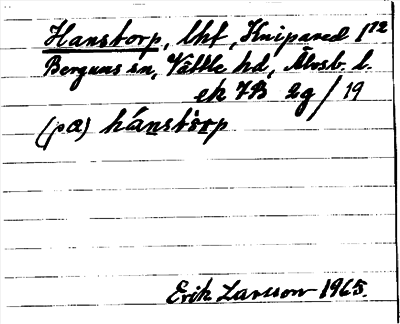 Hanstorp, lht, Knipared 1¹²
Bergums sn, Vättle hd, Älvsb. l.
ek 7B 2g/19
(pa) hánstòrp
Erik Larsson 1965.